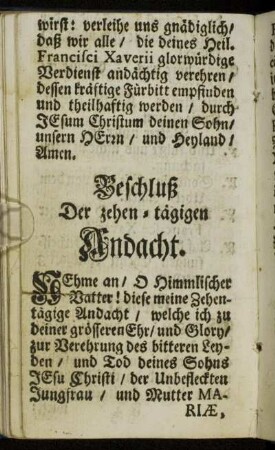 wirst: verleihe uns gnädiglich/
daß wir alle/ die deines Heil.
Francisci Xaverii glorwürdige
Verdienst andächtig verehren/
dessen kräftige Fürbitt empfinden
und theilhaftig werden/ durch
JEsum Christum deinen Sohn/
unsern HErrn/ und Heyland/
Amen.
Beschluß
Der zehen-tägigen
Andacht.
NEhme an/ O Himmlischer
Vatter! diese meine Zehen-
tägige Andacht/ welche ich zu
deiner grösseren Ehr/ und Glory/
zur Verehrung des bitteren Ley-
den/ und Tod deines Sohns
JEsu Christi/ der Unbefleckten
Jungfrau/ und Mutter MA-
RIÆ,